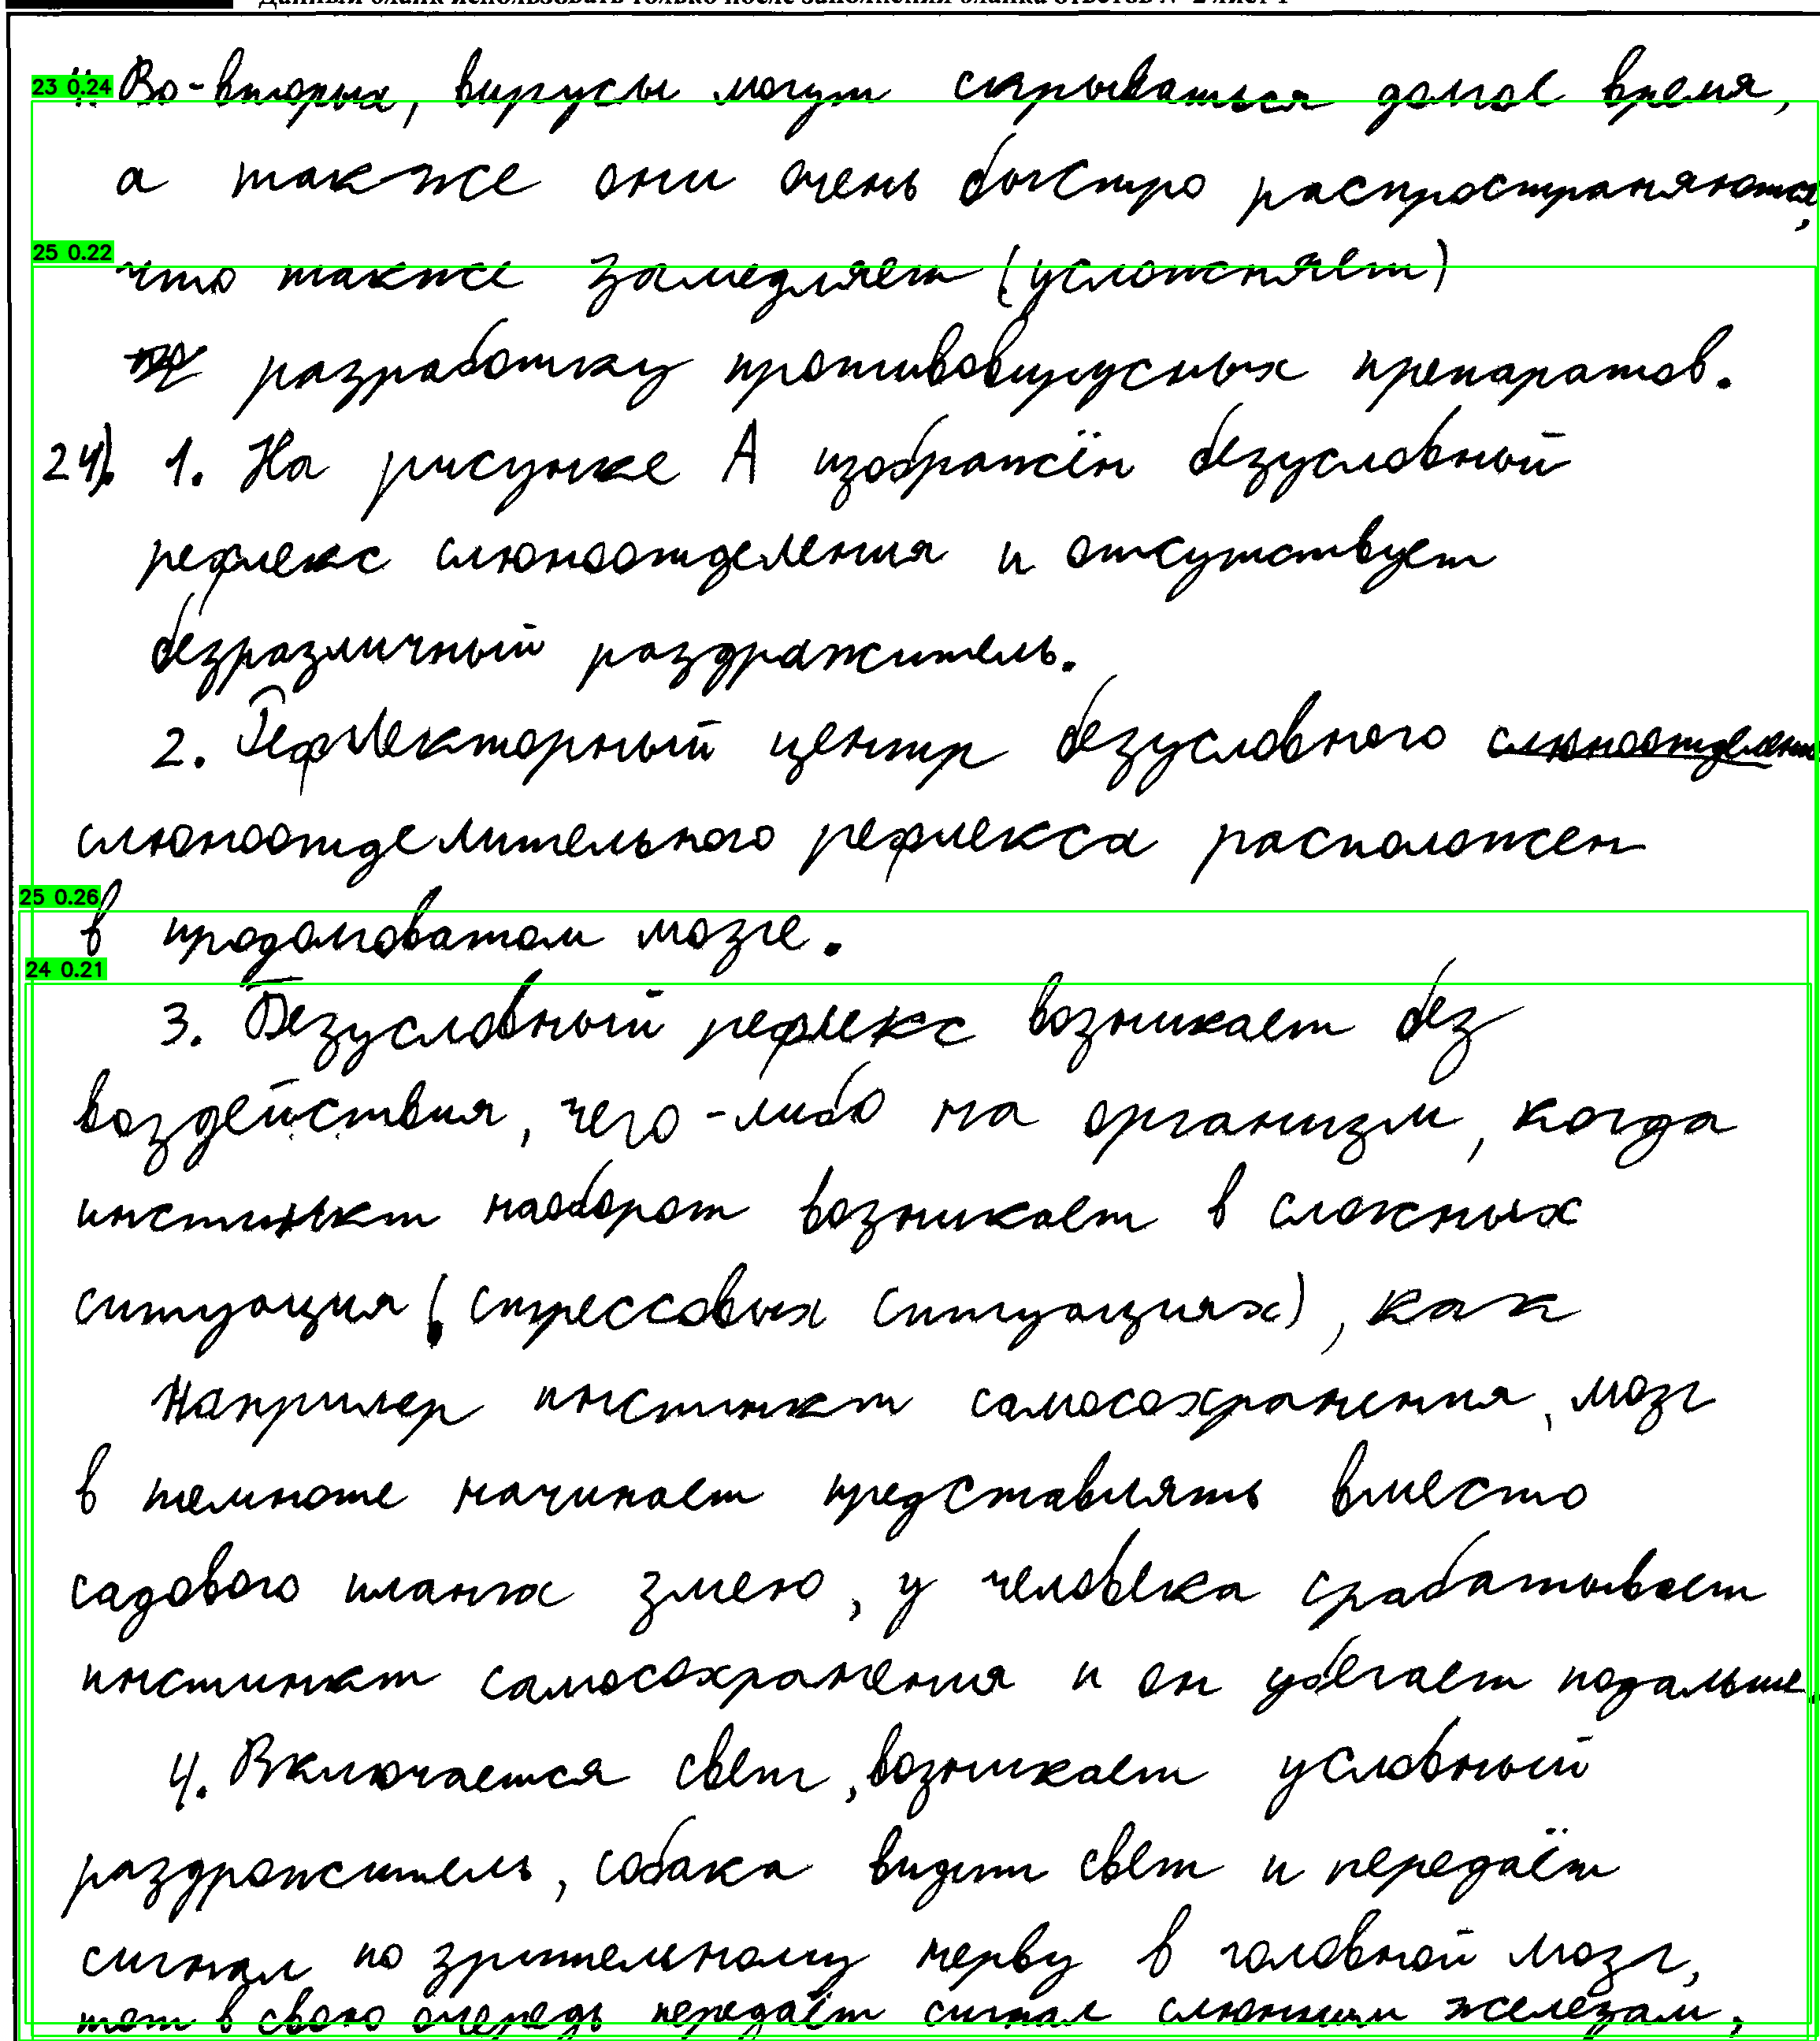 Данный бланк использовать только после заполнения бланка ответов № 2 лист 1
23 0.24
Во-вторых, вирусы могут скрываться долгое время,
а также они очень быстро распространяются,
25 0.22
что также замедляет (усложняет)
разработку противовирусных препаратов.
24). 1. На рисунке А изображён безусловный
рефлекс слюноотделения и отсутствует
безразличный раздражитель.
2. Рефлекторный центр безусловного слюноотделения
слюноотделительного рефлекса расположен
25 0.26
в продолговатом мозге.
24 0.21
3. Безусловный рефлекс возникает без
воздействия, чего-либо на организм, когда
инстинкт наоборот возникает в сложных
ситуация (стрессовых ситуациях), как
Например инстинкт самосохранения, мозг
в темноте начинает представлять вместо
садового шланга змею, у человека срабатывает
инстинкт самосохранения и он убегает подальше.
4. Включается свет, возникает условный
раздражитель, собака видит свет и передаёт
сигнал по зрительному нерву в головной мозг,
тот в свою очередь передаёт сигнал слюнным железам,